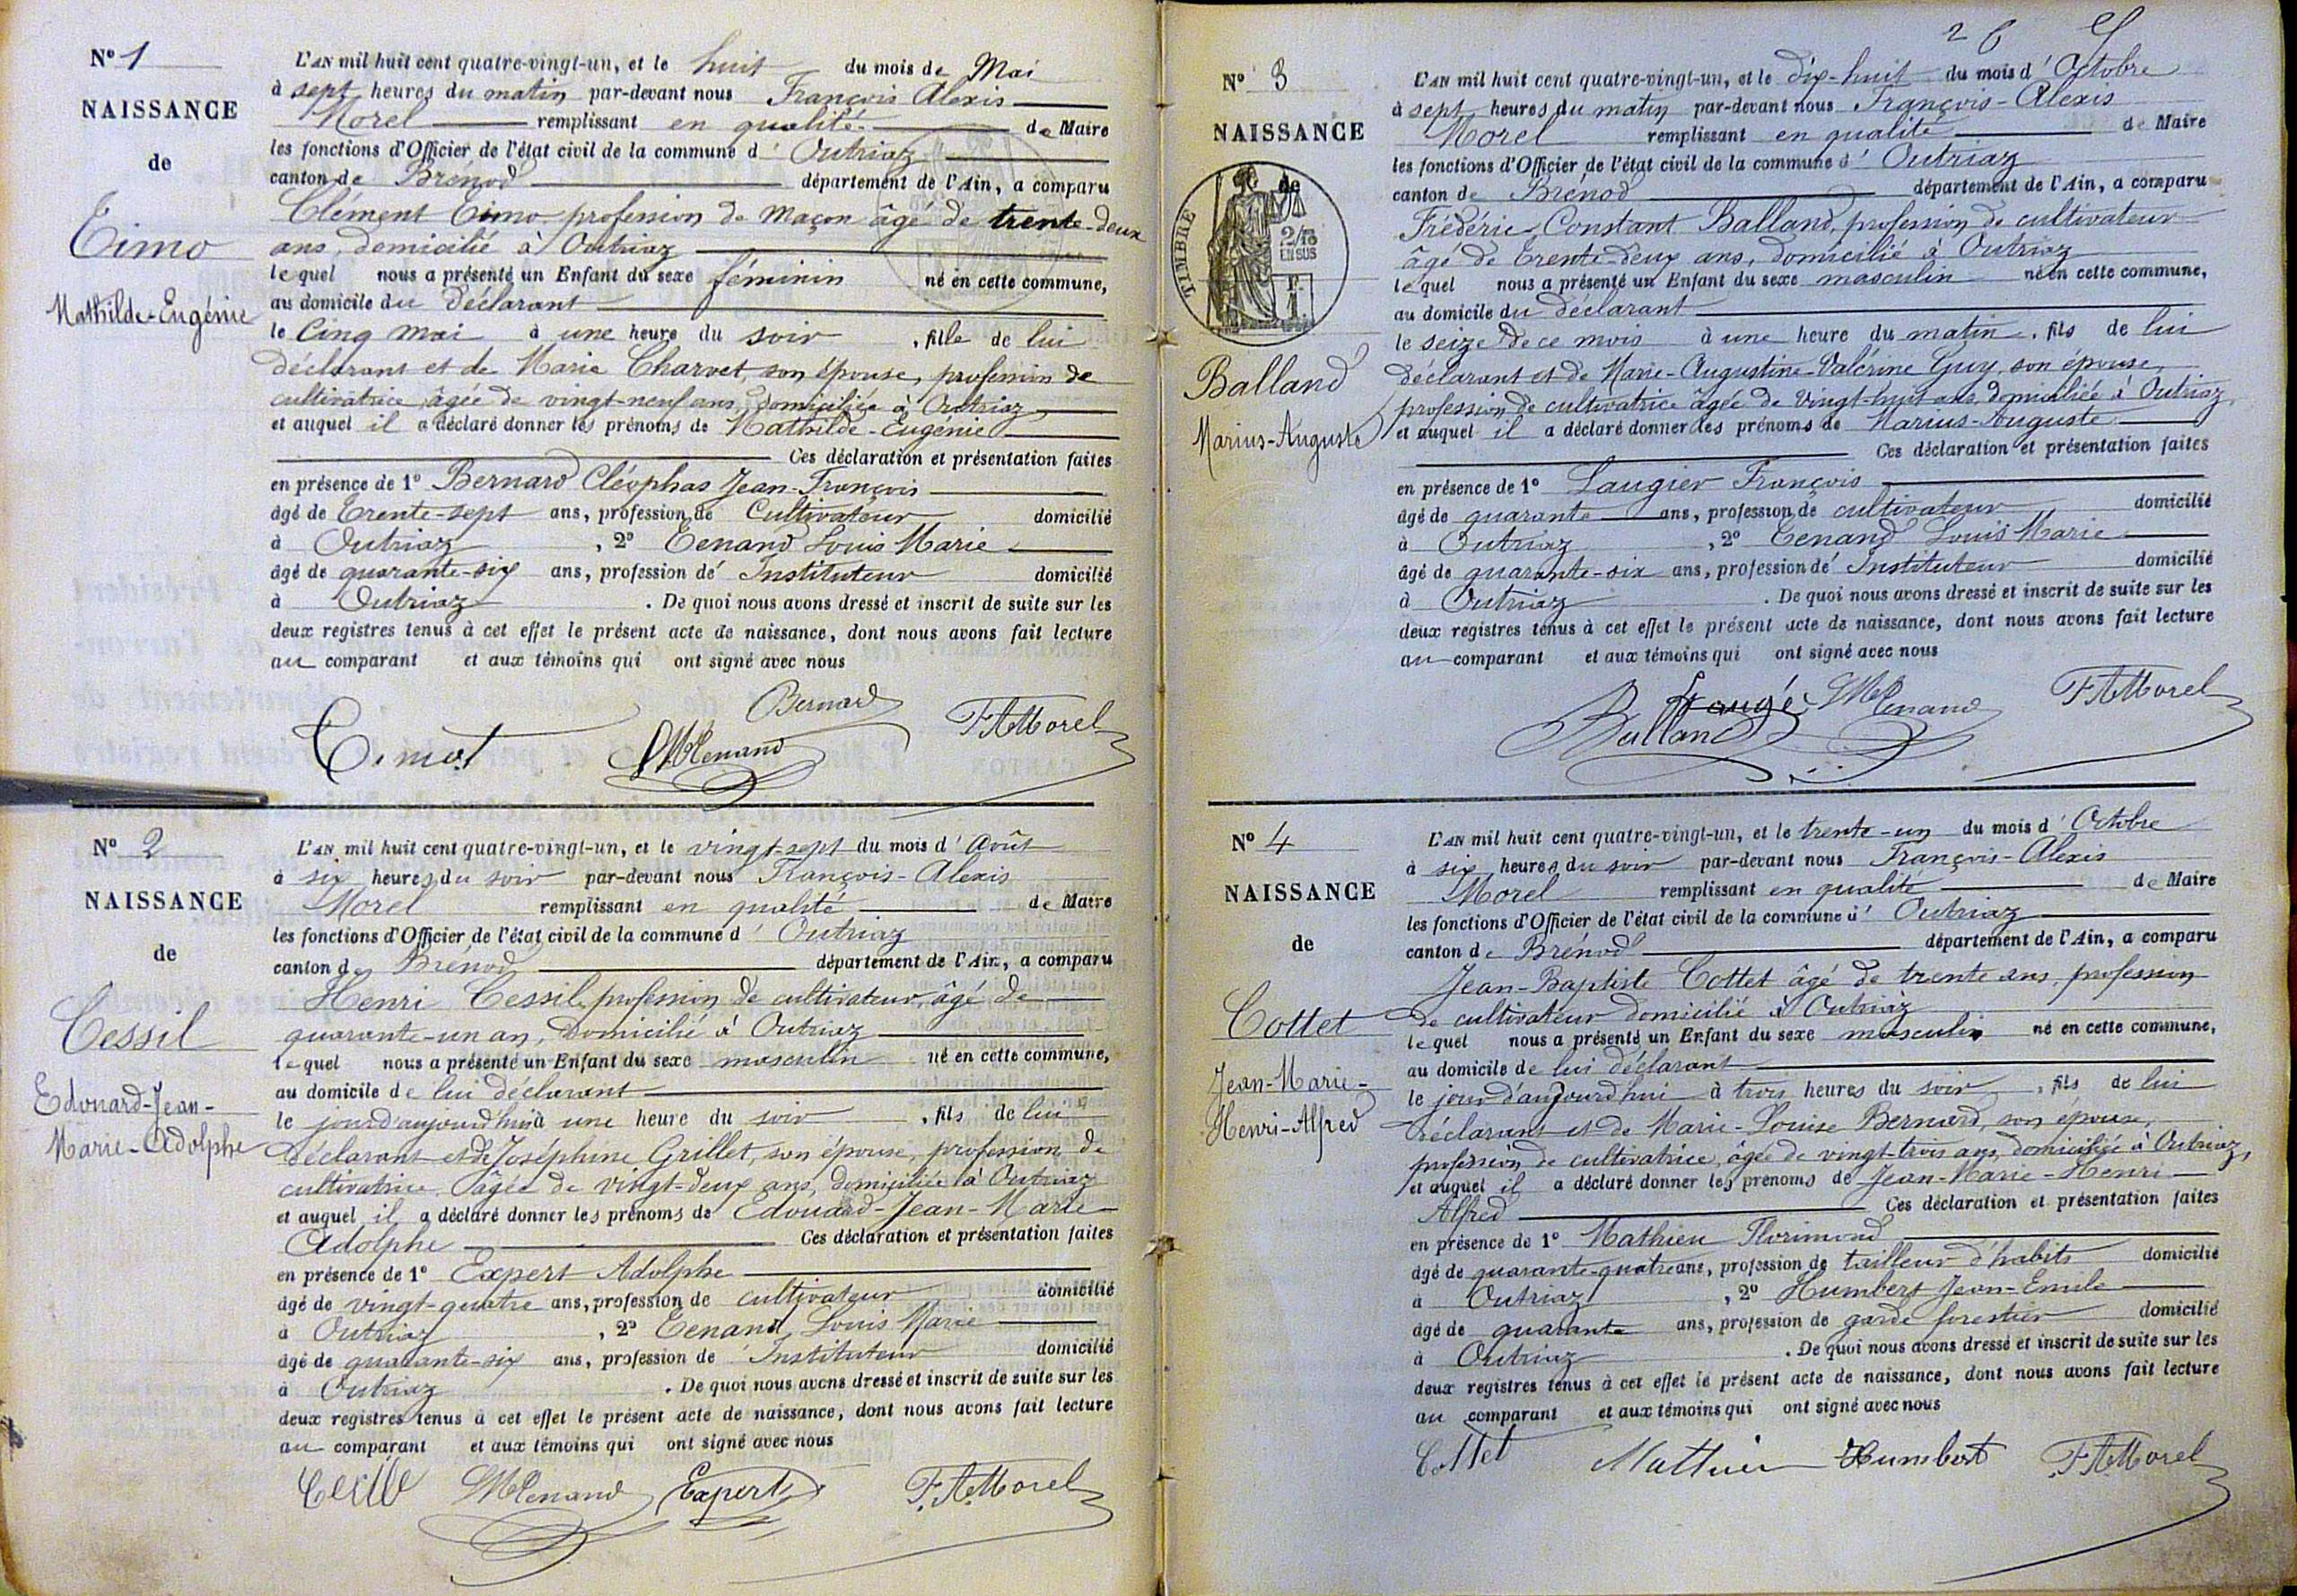 Nº 1
NAISSANCE
de
Timo
Mathilde-Eugénie
L'AN mil huit cent quatre-vingt-un, et le huit du mois de Mai
à sept heures du matin par-devant nous François Alexis
Morel remplissant en qualité de Maire
les fonctions d'Officier de l'état civil de la commune d' Outriaz
canton de Brénod département de l'Ain, a comparu
Clément Timo profession de maçon âgé de trente-deux
ans, domicilié à Outriaz
lequel nous a présenté un Enfant du sexe féminin né en cette commune,
au domicile du déclarant
le Cinq mai à une heure du soir, fille de lui
déclarant et de Marie Charvet, son épouse, profession de
cultivatrice, âgée de vingt-neuf ans, domiciliée à Outriaz,
et auquel il a déclaré donner les prénoms de Mathilde-Eugénie
Ces déclaration et présentation faites
en présence de 1º Bernard Cléophas Jean-François
âgé de trente-sept ans, profession de Cultivateur domicilié
à Outriaz, 2º Tenand Louis Marie
âgé de quarante-six ans, profession de Instituteur domicilié
à Outriaz. De quoi nous avons dressé et inscrit de suite sur les
deux registres tenus à cet effet le présent acte de naissance, dont nous avons fait lecture
au comparant et aux témoins qui ont signé avec nous
Bernard
Timot LMTenand FAMorel
Nº 2
NAISSANCE
de
Cessil
Edouard-Jean-
Marie-Adolphe
L'AN mil huit cent quatre-vingt-un, et le vingt-sept du mois d'Août
à six heures du soir par-devant nous François-Alexis
Morel remplissant en qualité de Maire
les fonctions d'Officier de l'état civil de la commune d' Outriaz
canton de Brénod département de l'Ain, a comparu
Henri Cessil, profession de cultivateur, âgé de
quarante-un an, domicilié à Outriaz
lequel nous a présenté un Enfant du sexe masculin né en cette commune,
au domicile de lui déclarant
le jour d'aujourd'hui à une heure du soir, fils de lui
déclarant et de Joséphine Grillet, son épouse, profession de
cultivatrice, âgée de vingt-deux ans, domiciliée à Outriaz
et auquel il a déclaré donner les prénoms de Edouard-Jean-Marie
Adolphe Ces déclaration et présentation faites
en présence de 1º Expert Adolphe
âgé de vingt-quatre ans, profession de cultivateur domicilié
à Outriaz, 2º Tenand Louis Marie
âgé de quarante-six ans, profession de Instituteur domicilié
à Outriaz. De quoi nous avons dressé et inscrit de suite sur les
deux registres tenus à cet effet le présent acte de naissance, dont nous avons fait lecture
au comparant et aux témoins qui ont signé avec nous
LMTenand Expert F.A.Morel
2 6
Nº 3
NAISSANCE
de
TIMBRE
2/10
EN SUS
F.
1
Balland
Marius-Auguste
L'AN mil huit cent quatre-vingt-un, et le dix-huit du mois d'Octobre
à sept heures du matin par-devant nous François-Alexis
Morel remplissant en qualité de Maire
les fonctions d'Officier de l'état civil de la commune d' Outriaz
canton de Brénod département de l'Ain, a comparu
Frédéric Constant Balland, profession de cultivateur
âgé de trente-deux ans, domicilié à Outriaz
lequel nous a présenté un Enfant du sexe masculin né en cette commune,
au domicile du déclarant
le seize de ce mois à une heure du matin, fils de lui
déclarant et de Marie-Augustine-Valérine Guy, son épouse,
profession de cultivatrice âgée de vingt-huit ans, domiciliée à Outriaz,
et auquel il a déclaré donner les prénoms de Marius-Auguste
Ces déclaration et présentation faites
en présence de 1º Laugier François
âgé de quarante ans, profession de cultivateur domicilié
à Outriaz, 2º Tenand Louis Marie
âgé de quarante-six ans, profession de Instituteur domicilié
à Outriaz. De quoi nous avons dressé et inscrit de suite sur les
deux registres tenus à cet effet le présent acte de naissance, dont nous avons fait lecture
au comparant et aux témoins qui ont signé avec nous
LMTenand FAMorel
Balland
Nº 4
NAISSANCE
de
Cottet
Jean-Marie-
Henri-Alfred
L'AN mil huit cent quatre-vingt-un, et le trente-un du mois d'Octobre
à six heures du soir par-devant nous François-Alexis
Morel remplissant en qualité de Maire
les fonctions d'Officier de l'état civil de la commune d' Outriaz
canton de Brénod département de l'Ain, a comparu
Jean-Baptiste Cottet âgé de trente ans, profession
de cultivateur domicilié à Outriaz
lequel nous a présenté un Enfant du sexe masculin né en cette commune,
au domicile de lui déclarant
le jour d'aujourd'hui à trois heures du soir, fils de lui
déclarant et de Marie-Louise Bernard, son épouse,
profession de cultivatrice, âgée de vingt-trois ans, domiciliée à Outriaz,
et auquel il a déclaré donner les prénoms de Jean-Marie-Henri
Alfred Ces déclaration et présentation faites
en présence de 1º Mathieu Florimond
âgé de quarante-quatre ans, profession de tailleur d'habits domicilié
à Outriaz, 2º Humbert Jean-Emile
âgé de quarante ans, profession de garde forestier domicilié
à Outriaz. De quoi nous avons dressé et inscrit de suite sur les
deux registres tenus à cet effet le présent acte de naissance, dont nous avons fait lecture
au comparant et aux témoins qui ont signé avec nous
Cottet Mathieu Humbert FAMorel